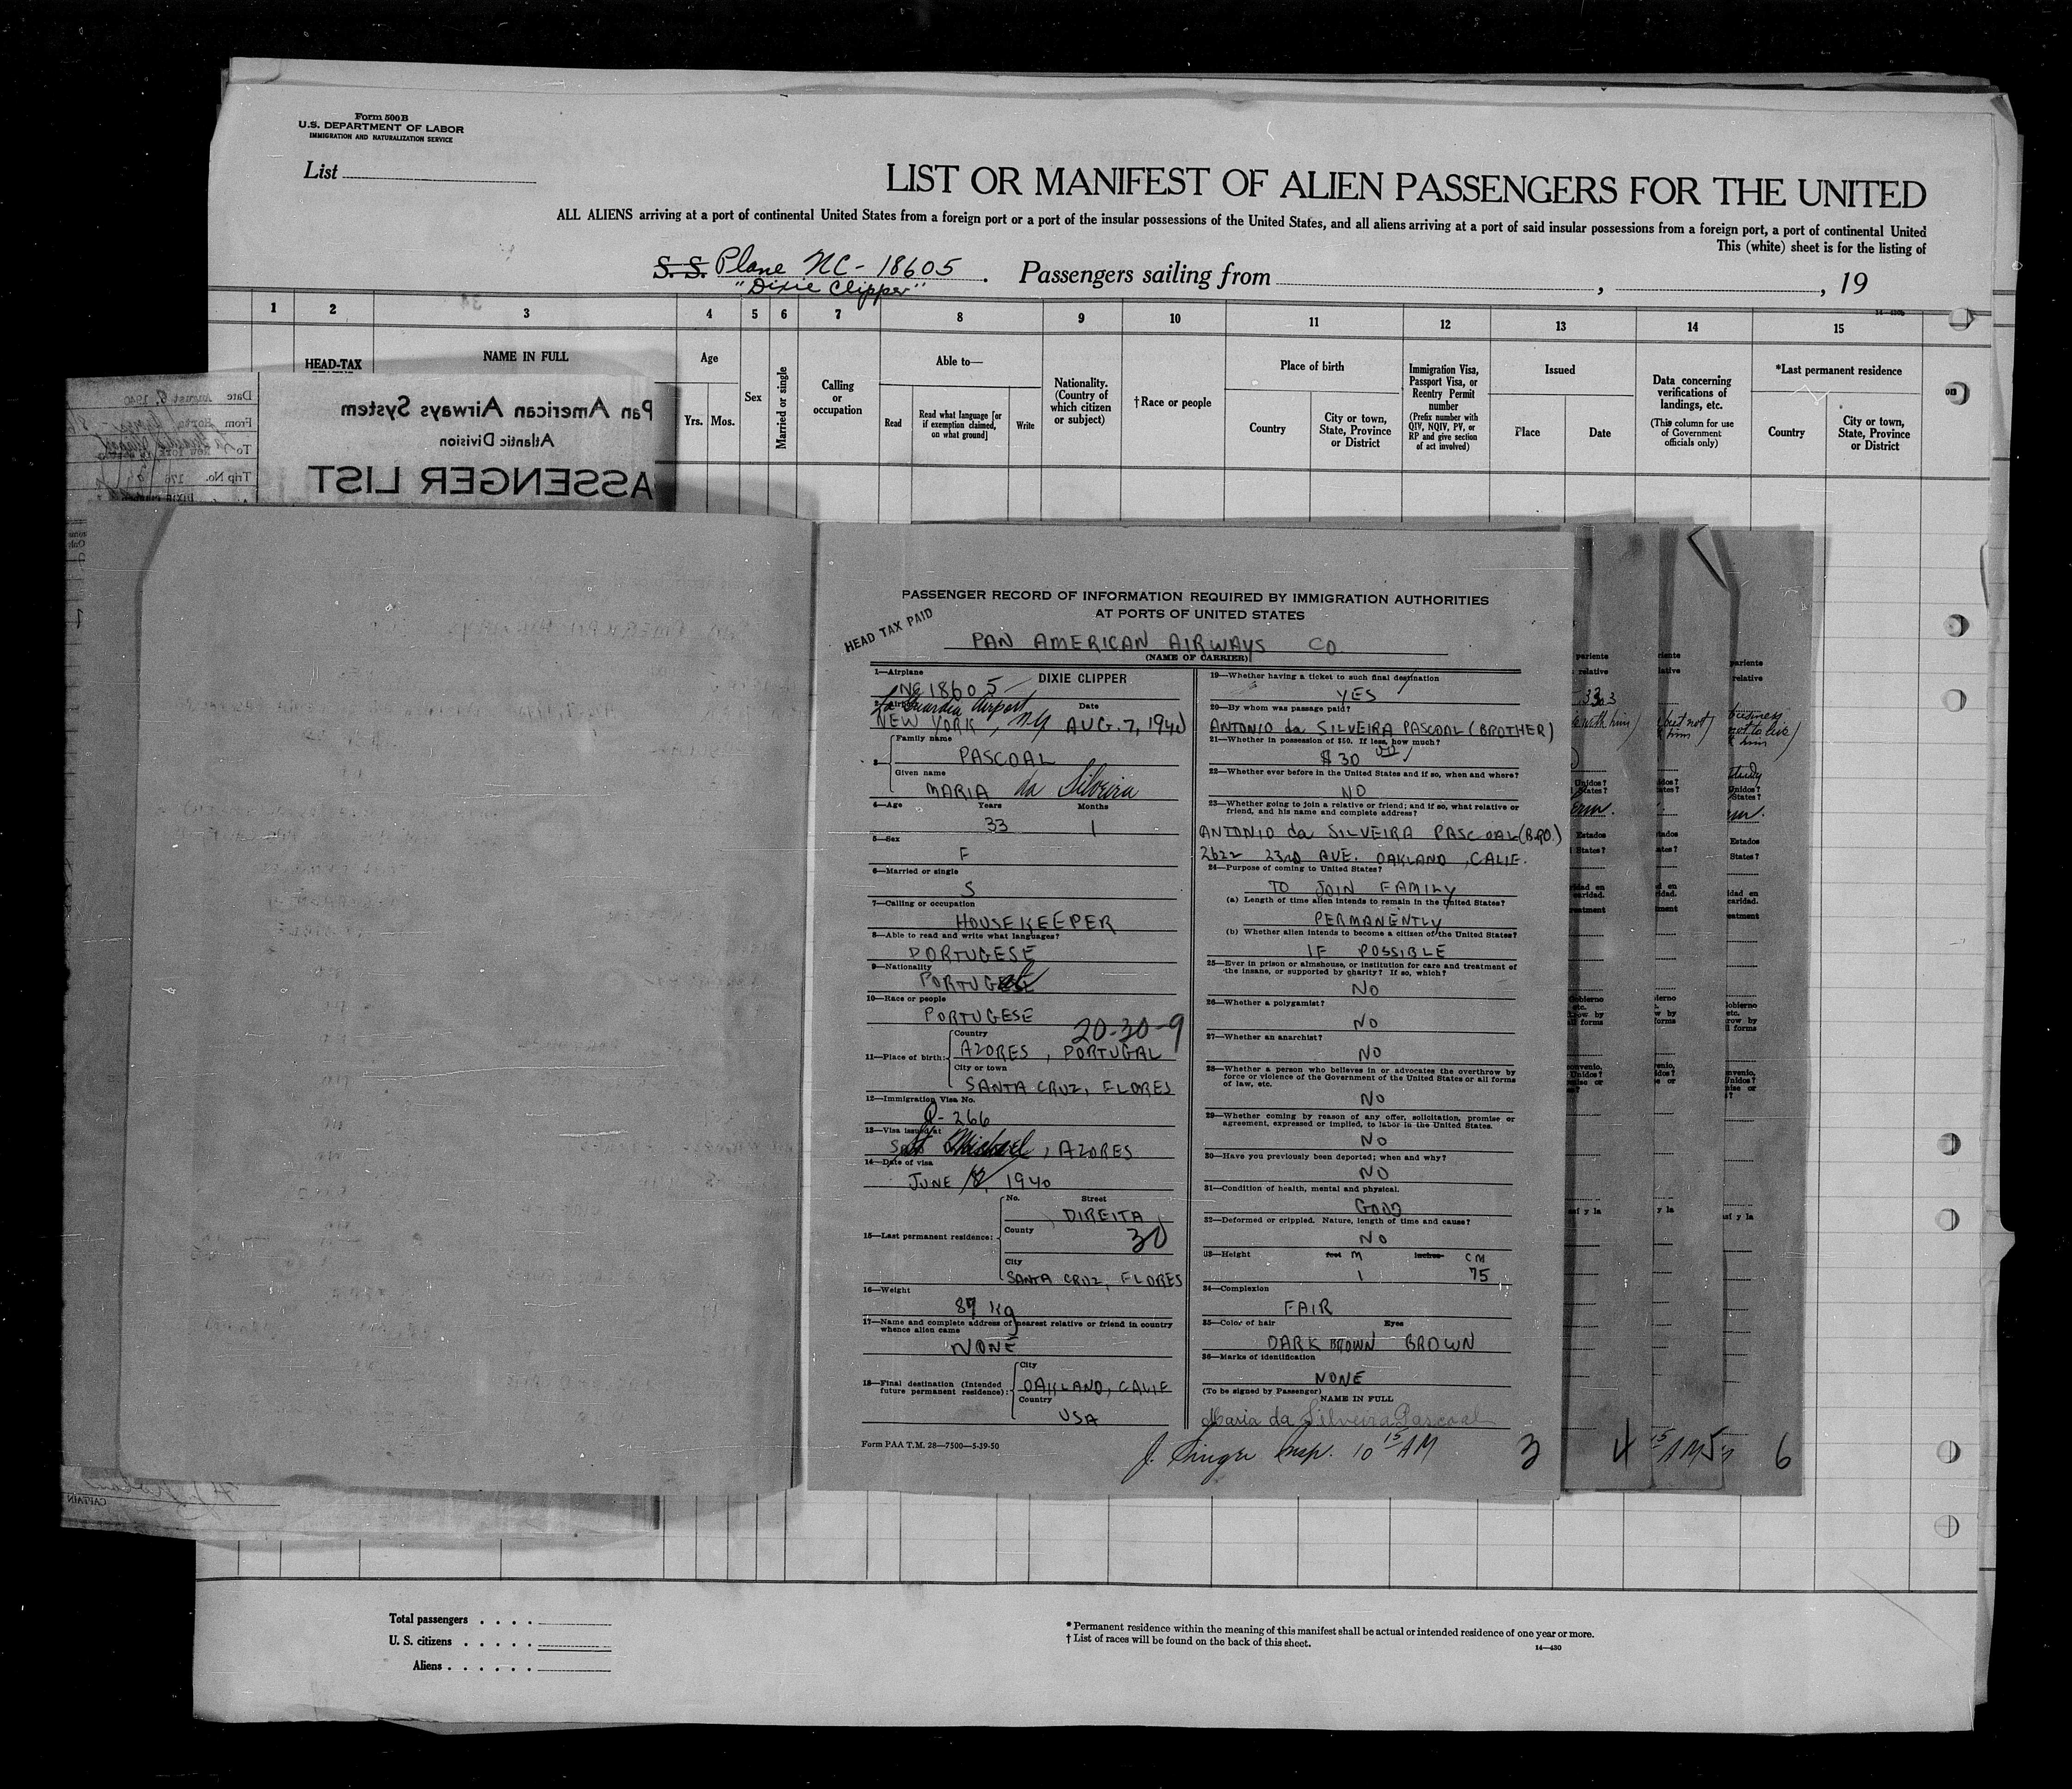 Form 500B
U.S. DEPARTMENT OF LABOR
IMMIGRATION AND NATURALIZATION SERVICE
List
LIST OR MANIFEST OF ALIEN PASSENGERS FOR THE UNITED
ALL ALIENS arriving at a port of continental United States from a foreign port or a port of the insular possessions of the United States, and all aliens arriving at a port of said insular possessions from a foreign port, a port of continental United
This (white) sheet is for the listing of
S. S. Plane NC-18605. Passengers sailing from , , 19
"Dixie Clipper"
1 2 3 4 5 6 7 8 9 10 11 12 13 14 15
HEAD-TAX
NAME IN FULL
Age
Yrs. Mos.
Sex
Married or single
Calling or occupation
Able to—
Read
Read what language [or if exemption claimed, on what ground]
Write
Nationality. (Country of which citizen or subject)
†Race or people
Place of birth
Country
City or town, State, Province or District
Immigration Visa, Passport Visa, or Reentry Permit number
(Prefix number with QIV, NQIV, PV, or RP and give section of act involved)
Issued
Place
Date
Data concerning verifications of landings, etc.
(This column for use of Government officials only)
*Last permanent residence
Country
City or town, State, Province or District
Pan American Airways System
Atlantic Division
ASSENGER LIST
Date August 6, 1940
From Horta
To New York
Trip No. 176
PASSENGER RECORD OF INFORMATION REQUIRED BY IMMIGRATION AUTHORITIES
AT PORTS OF UNITED STATES
HEAD TAX PAID
PAN AMERICAN AIRWAYS CO.
(NAME OF CARRIER)
1—Airplane
NC 18605 — DIXIE CLIPPER
La Guardia Airport, Date
NEW YORK, N.Y. AUG. 7, 1940
3— Family name
PASCOAL
Given name
MARIA da Silveira
4—Age Years Months
33 1
5—Sex
F
6—Married or single
S
7—Calling or occupation
HOUSEKEEPER
8—Able to read and write what languages?
PORTUGESE
9—Nationality
PORTUG
10—Race or people
PORTUGESE
20-30-9
11—Place of birth: Country
AZORES, PORTUGAL
City or town
SANTA CRUZ, FLORES
12—Immigration Visa No.
Q-266
13—Visa issued at
St Michael, AZORES
14—Date of visa
JUNE 18, 1940
15—Last permanent residence: No. Street
DIREITA
County
30
City
SANTA CRUZ, FLORES
16—Weight
87 Kg
17—Name and complete address of nearest relative or friend in country
whence alien came
NONE
18—Final destination (Intended
future permanent residence): City
OAKLAND, CALIF
Country
USA
Form PAA T.M. 28—7500—5-39-50
19—Whether having a ticket to such final destination
YES
20—By whom was passage paid?
ANTONIO da SILVEIRA PASCOAL (BROTHER)
21—Whether in possession of $50. If less, how much?
$30 00
22—Whether ever before in the United States and if so, when and where?
NO
23—Whether going to join a relative or friend; and if so, what relative or
friend, and his name and complete address?
ANTONIO da SILVEIRA PASCOAL (BRO.)
2622 23RD AVE. OAKLAND, CALIF.
24—Purpose of coming to United States?
TO JOIN FAMILY
(a) Length of time alien intends to remain in the United States?
PERMANENTLY
(b) Whether alien intends to become a citizen of the United States?
IF POSSIBLE
25—Ever in prison or almshouse, or institution for care and treatment of
the insane, or supported by charity? If so, which?
NO
26—Whether a polygamist?
NO
27—Whether an anarchist?
NO
28—Whether a person who believes in or advocates the overthrow by
force or violence of the Government of the United States or all forms
of law, etc.
NO
29—Whether coming by reason of any offer, solicitation, promise or
agreement, expressed or implied, to labor in the United States.
NO
30—Have you previously been deported; when and why?
NO
31—Condition of health, mental and physical.
GOOD
32—Deformed or crippled. Nature, length of time and cause?
NO
33—Height feet M inches CM
1 75
34—Complexion
FAIR
35—Color of hair Eyes
DARK BROWN BROWN
36—Marks of identification
NONE
(To be signed by Passenger)
NAME IN FULL
Maria da Silveira Pascoal
Insp. 10 15 AM 3 4 15 AM 5 6
CAPTAIN
Total passengers
U. S. citizens
Aliens
* Permanent residence within the meaning of this manifest shall be actual or intended residence of one year or more.
† List of races will be found on the back of this sheet.
14—430